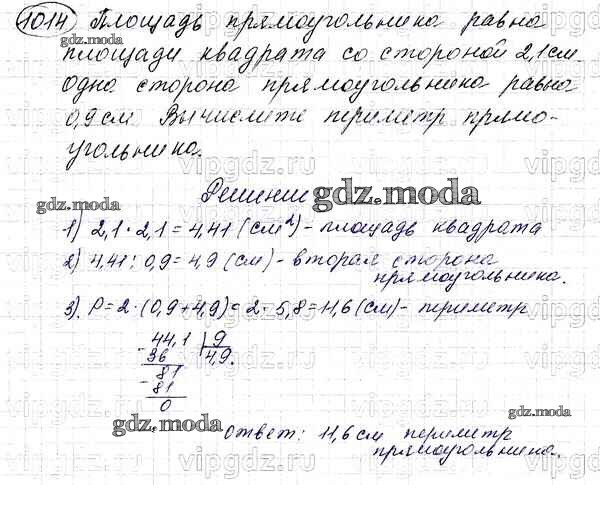 1014 Площадь прямоугольника равна
gdz.moda
площади квадрата со стороной 2,1 см.
Одна сторона прямоугольника равна
0,9 см Вычислите периметр прямо-
угольника.
Решение gdz.moda
gdz.moda
1) 2,1 · 2,1 = 4,41 (см²) - площадь квадрата
2) 4,41 : 0,9 = 4,9 (см) - вторая сторона
прямоугольника.
3). P = 2 · (0,9 + 4,9) = 2 · 5,8 = 11,6 (см) - периметр
44,1 | 9
- 36 4,9.
81
- 81
0
gdz.moda
gdz.moda
Ответ: 11,6 см периметр
прямоугольника.
vipgdz.ru vipgdz.ru vipgdz.ru